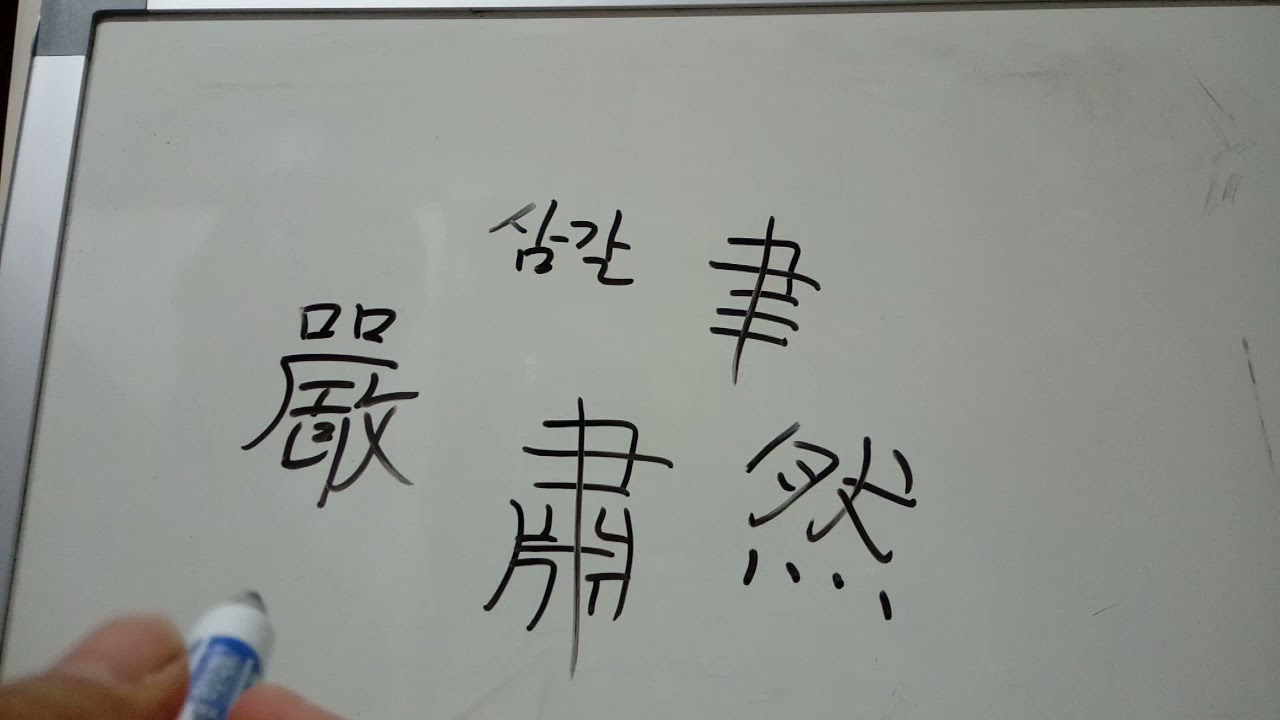 삼갈 聿
嚴 肅 然